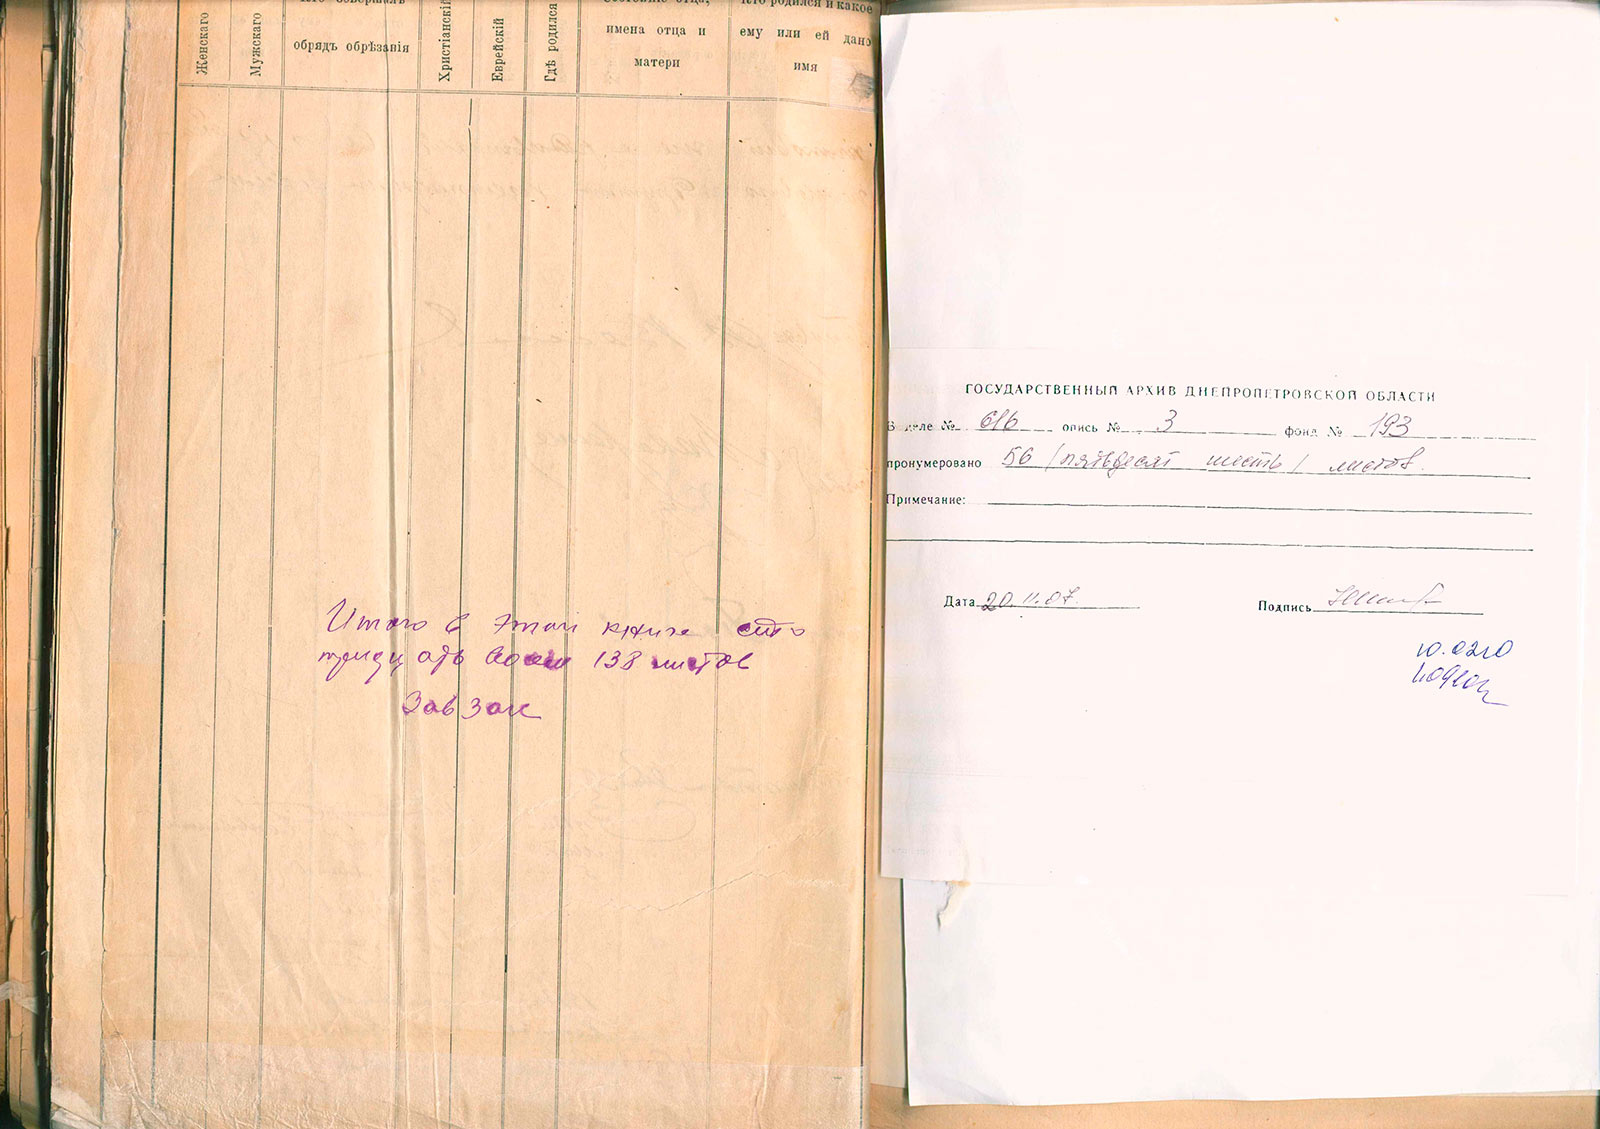 Женскаго
Мужскаго
обрядъ обрѣзанія
Христіанскій
Еврейскій
Гдѣ родился
имена отца и
матери
Кто родился и какое
ему или ей дано
имя
Итого в этой книге сто
тридцать восем 138 листов
Завзаг
ГОСУДАРСТВЕННЫЙ АРХИВ ДНЕПРОПЕТРОВСКОЙ ОБЛАСТИ
В деле № 616 опись № 3 фонд № 193
пронумеровано 56 /пятьдесят шесть/ листов.
Примечание:
Дата 20.11.07. Подпись